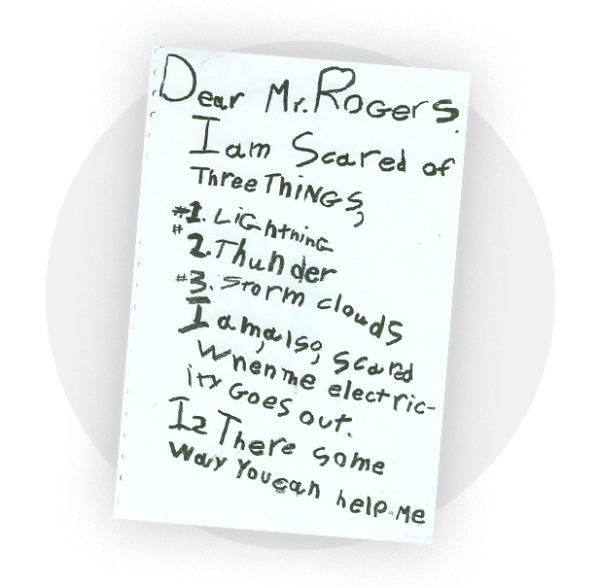 Dear Mr. Rogers.
I am Scared of
Three THiNGS,
#1. LiGhtninG
#2. Thunder
#3. Storm clouds
I am, also, scared
When The electric-
ity Goes out.
Iz There some
way You can help me